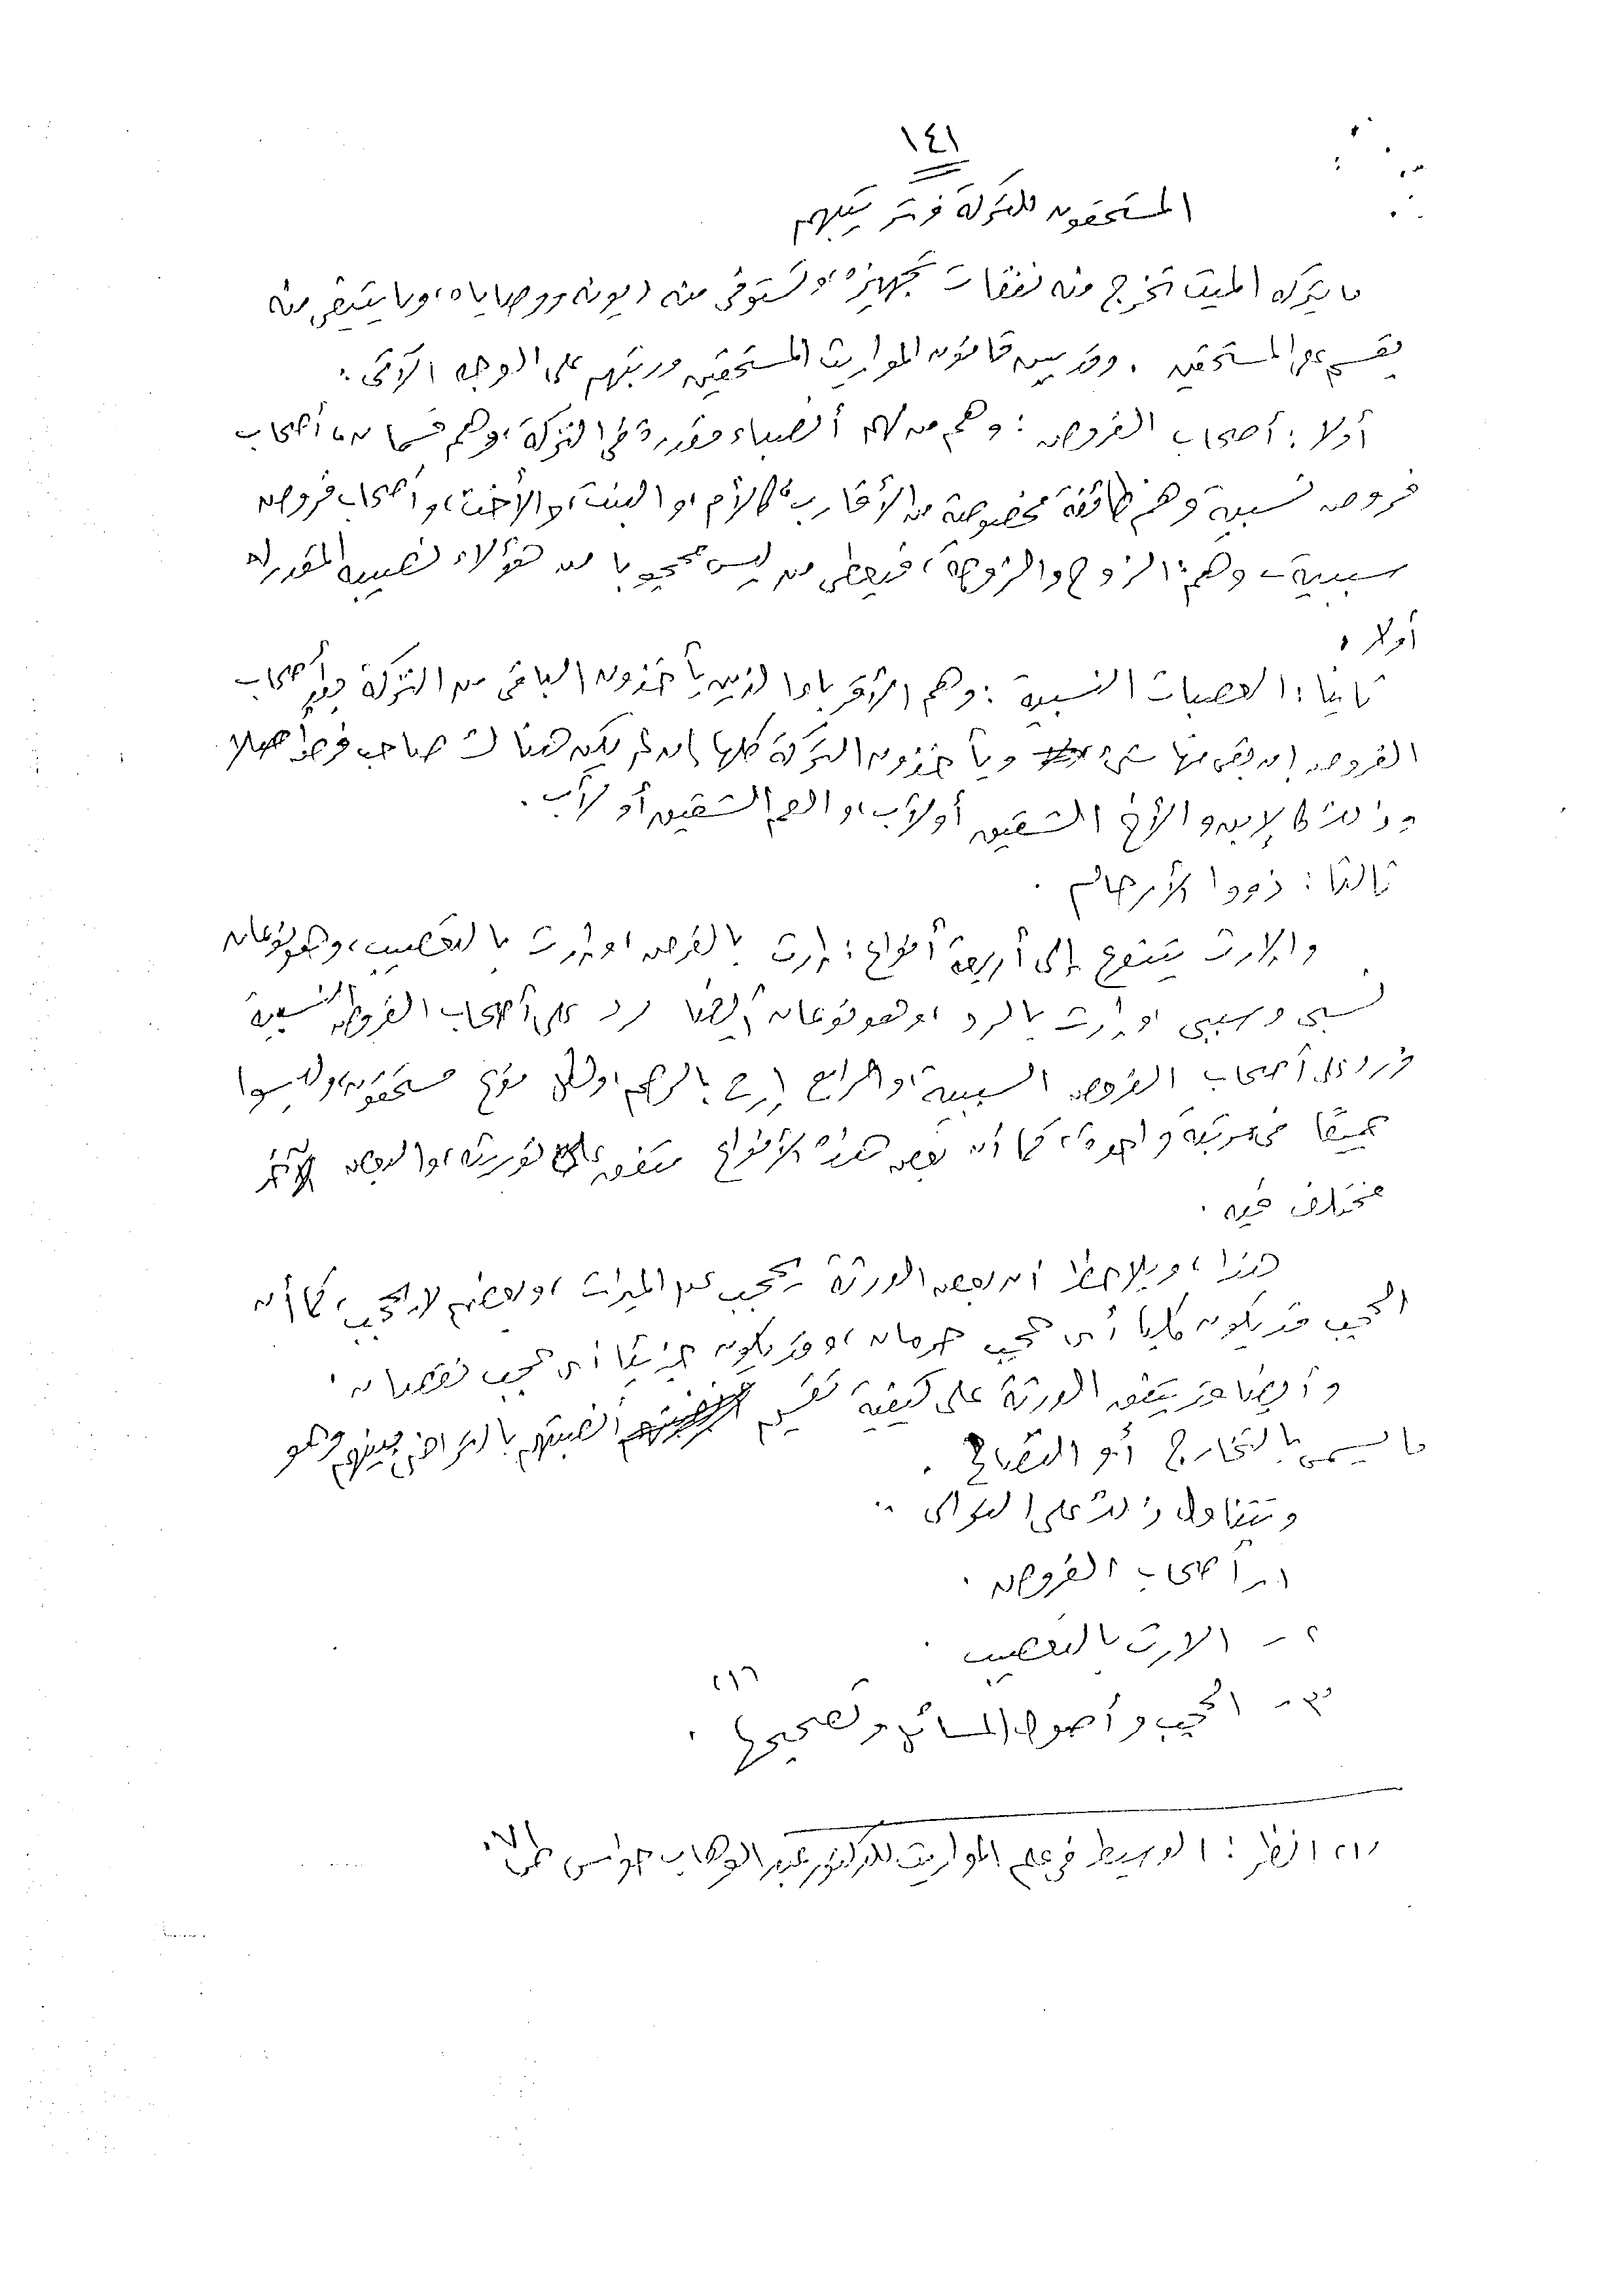 ١٤١
المستحقون للتركة وترتيبهم
ما يتركه الميت تخرج منه نفقات تجهيزه، وتستوفى منه ديونه ووصاياه، وما يتبقى منه
يقسم على المستحقين . وقد بين قانون المواريث المستحقين ورتبهم على الوجه الآتى :
أولا : أصحاب الفروض : وهم من لهم أنصباء مقدرة فى التركة، وهم قسمان، أصحاب
فروض نسبية وهم طائفة مخصوصة من الأقارب، كالأم، والبنت، والأخت، وأصحاب فروض
سببية - وهم: الزوج والزوجة، فيعطى من ليس محجوبا من هؤلاء نصيبه المقدر له
أولا .
ثانيا : العصبات النسبية : وهم الأقرباء الذين يأخذون الباقى من التركة بعد أصحاب
الفروض إن بقى منها شىء ويأخذون التركة كلها إن لم يكن هناك صاحب فرض أصلا
وذلك كالإبن والأخ الشقيق أو لأب، والعم الشقيق أو لأب .
ثالثا : ذووا الأرحام .
والإرث يتنوع إلى أربعة أنواع : إرث بالفرض، وإرث بالتعصيب، وهو نوعان
نسبى وسببى، وإرث بالرد، وهو نوعان أيضا رد على أصحاب الفروض النسبية
ورد على أصحاب الفروض السببية، والرابع إرث بالرحم، ولكل نوع مستحقون، وليسوا
جميعًا فى مرتبة واحدة، كما أن بعض هذه الأنواع متفق على توريثه، والبعض الآخر
مختلف فيه .
هذا، ويلاحظ أن بعض الورثة يحجب عن الميراث، وبعضهم لا يحجب، كما أن
الحجب قد يكون كليا أى حجب حرمان، وقد يكون جزئيًا أى حجب نقصان .
وأيضا قد يتفق الورثة على كيفية تقسيم أنصبتهم بالتراضى بينهم وهو
ما يسمى بالتخارج أو التصالح .
ونتناول ذلك على التوالى ..
١ - أصحاب الفروض .
٢ - الارث بالتعصيب .
٣ - الحجب وأصول المسائل وتصحيحها (١) .
(١) انظر : الوسيط فى علم المواريث للدكتور عبد الوهاب حواس